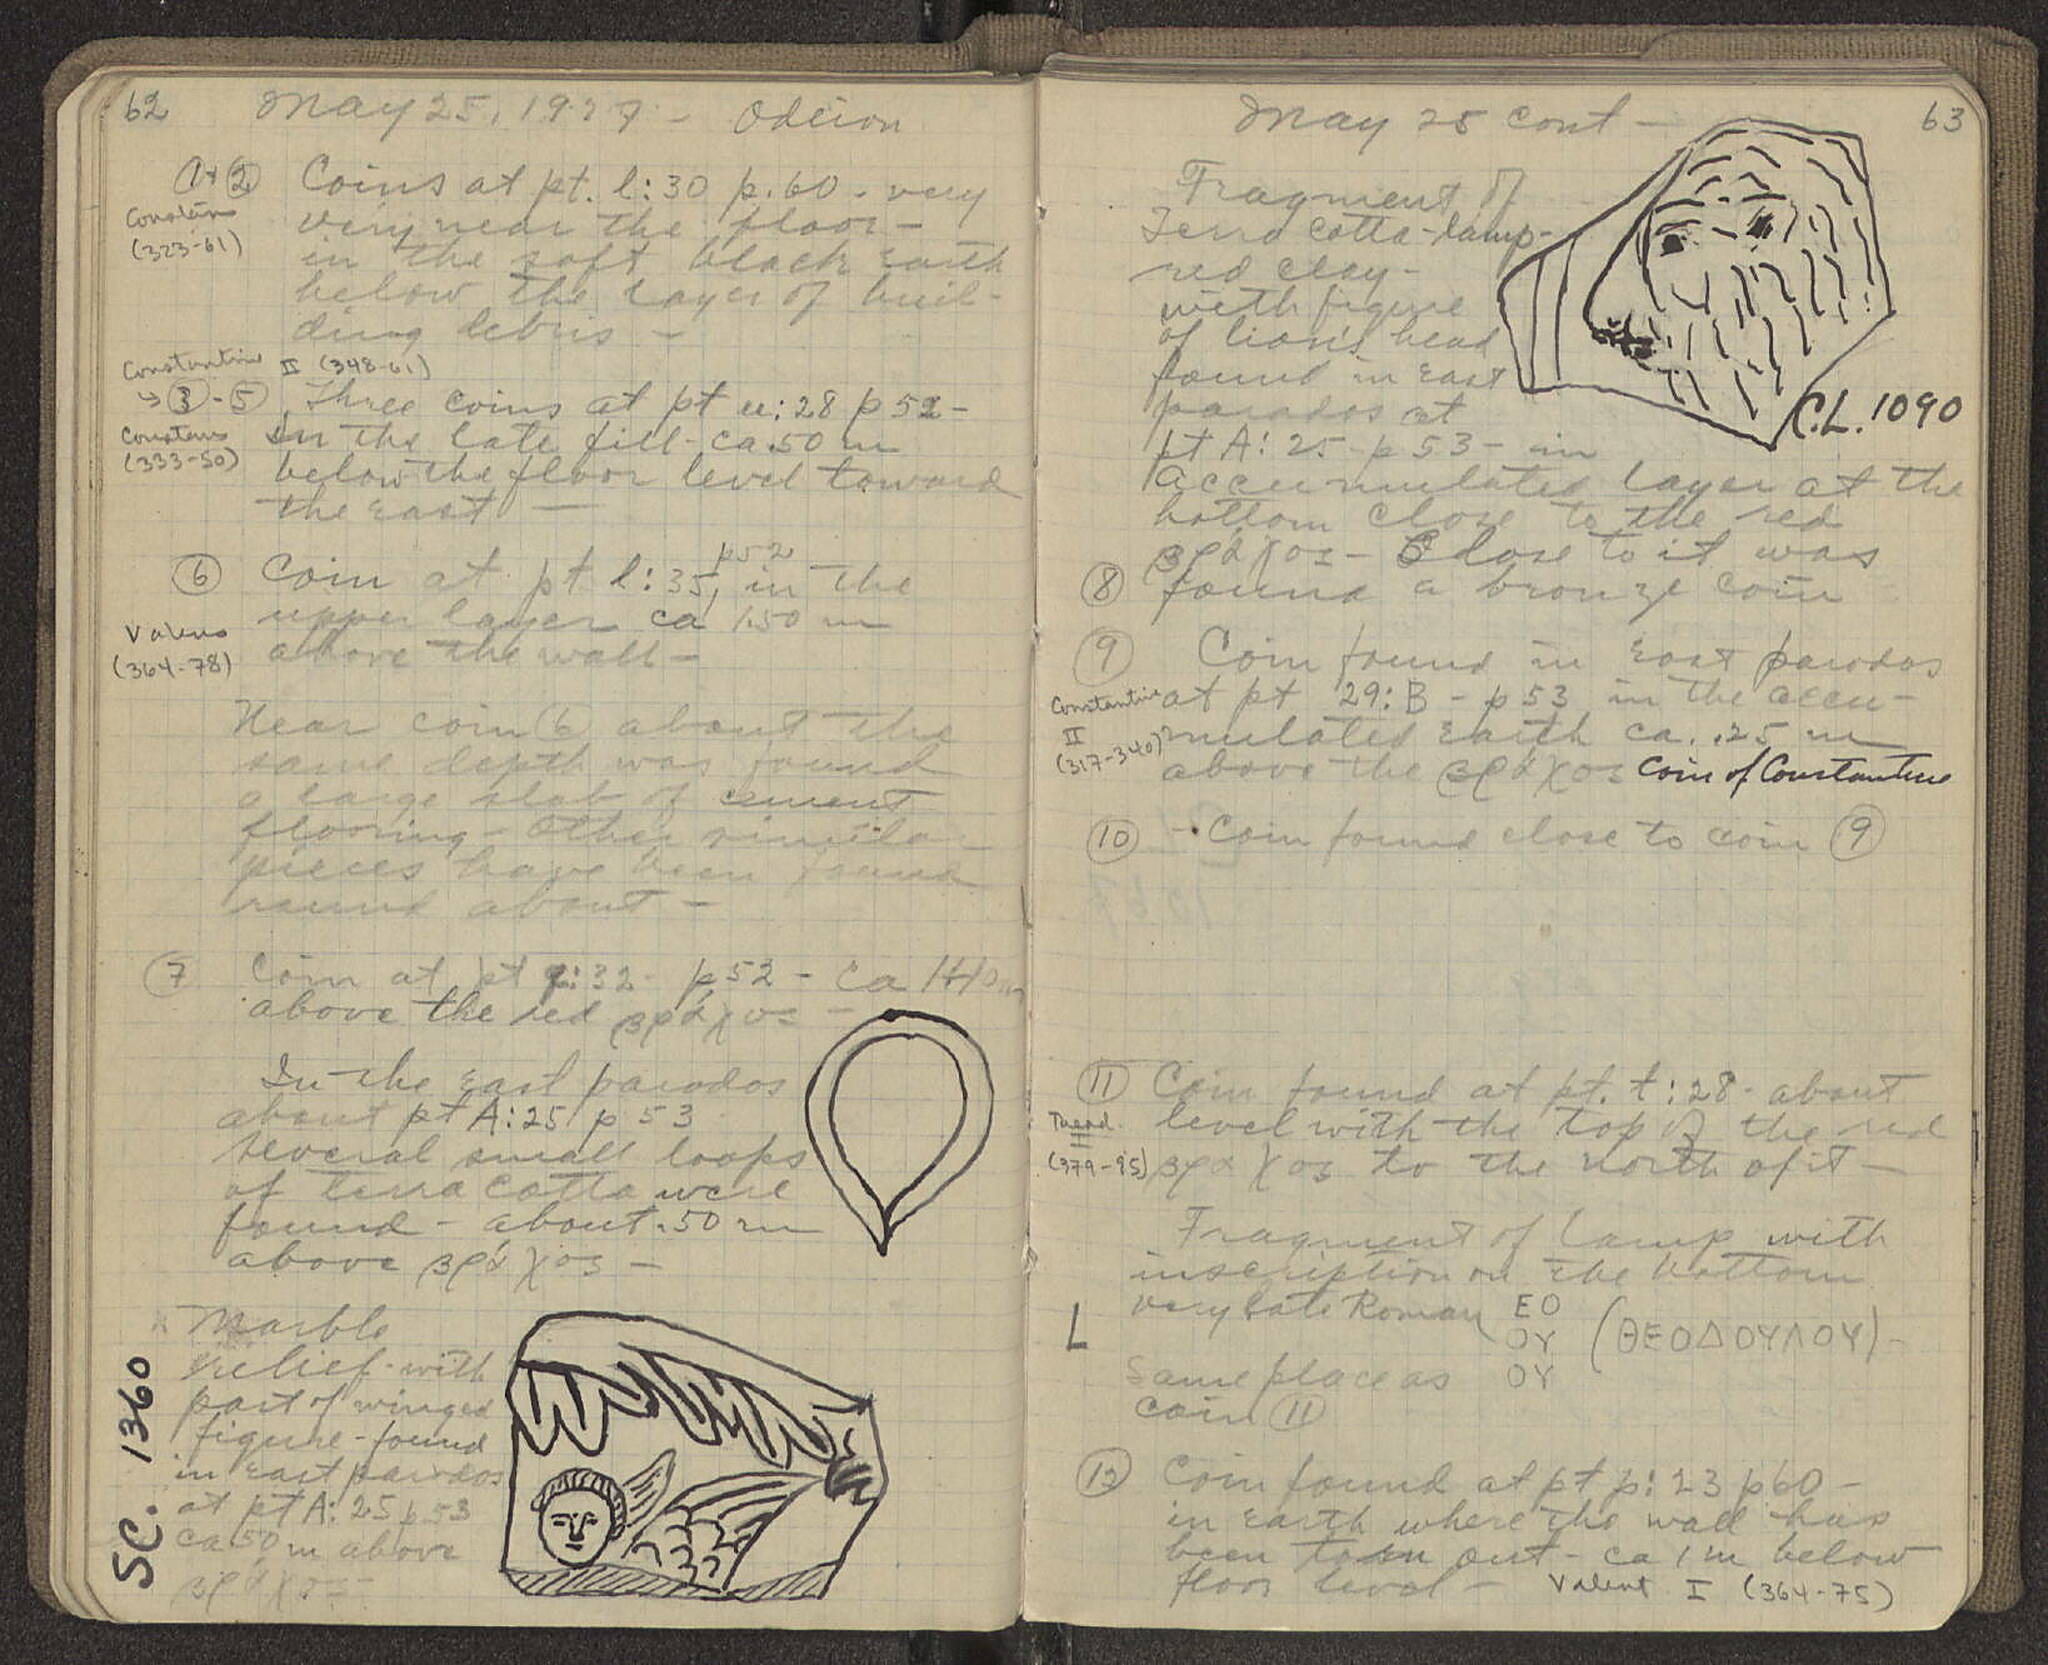 62 May 25, 1927 - Odeion
1+2 Coins at pt. l:30 p.60 - very
(323-61)
very near the floor -
in the soft black earth
below the layer of buil-
ding debris -
Constantius II (348-61)
→ 3-5 Three coins at pt u:28 p 52 -
Constans
(333-50)
in the late fill - ca .50 m
below the floor level toward
the east -
6 Coin at pt l:35, p52 in the
Valens
(364-78)
upper layer ca 1.50 m
above the wall -
Near coin 6 about the
same depth was found
a large slab of cement
flooring - Other similar
pieces have been found
round about -
7 Coin at pt :32 - p52 - ca 1.40 m
above the red βράχος -
In the east parodos
about pt A:25 p 53
several small loops
of terra cotta were
found - about .50 m
above βράχος -
SC. 1360
Marble
relief - with
part of winged
figure - found
in east parodos
at pt A:25 p53
ca 50 m above
βράχος -
May 25 cont - 63
Fragment of
Terra cotta - lamp -
red clay -
with figure
of lion's head
found in east
parodos at
pt A:25 - p 53 - in
C.L. 1090
accumulated layer at the
bottom close to the red
βράχος - Close to it was
8 found a bronze coin
9 Coin found in east parodos
Constantine
II
(317-340)
at pt 29:B - p 53 in the accu-
mulated earth ca. .25 m
above the βράχος Coin of Constantine
10 - Coin found close to coin 9
11 Coin found at pt. t:28 - about
Theod.
I
(379-95)
level with the top of the red
βράχος to the north of it -
Fragment of lamp with
inscription on the bottom
L
very late Roman
ΕΟ
ΟΥ (ΘΕΟΔΟΥΛΟΥ) -
ΟΥ
Same place as
coin 11
12 Coin found at pt p:23 p60 -
in earth where the wall has
been torn out - ca 1 m below
floor level - Valent I (364-75)